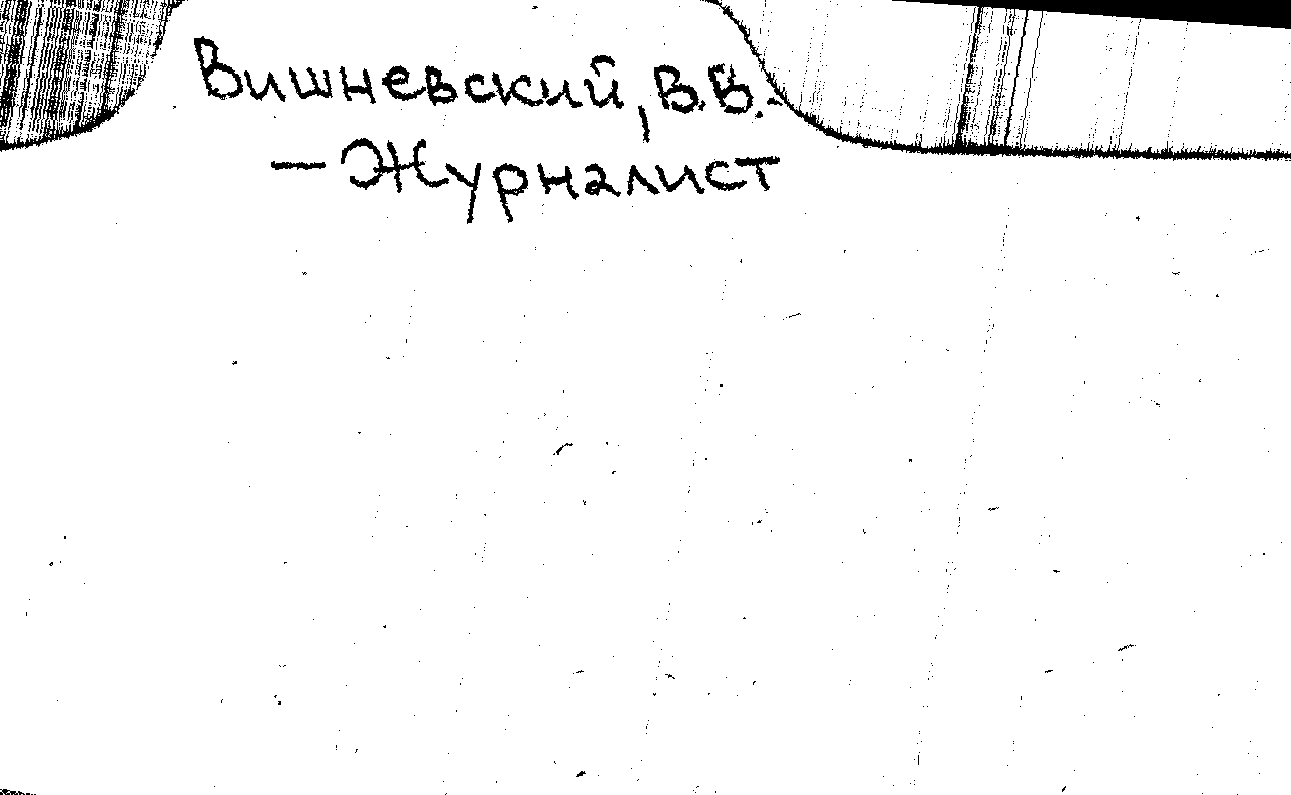 Вишневский, В.В.
— Журналист